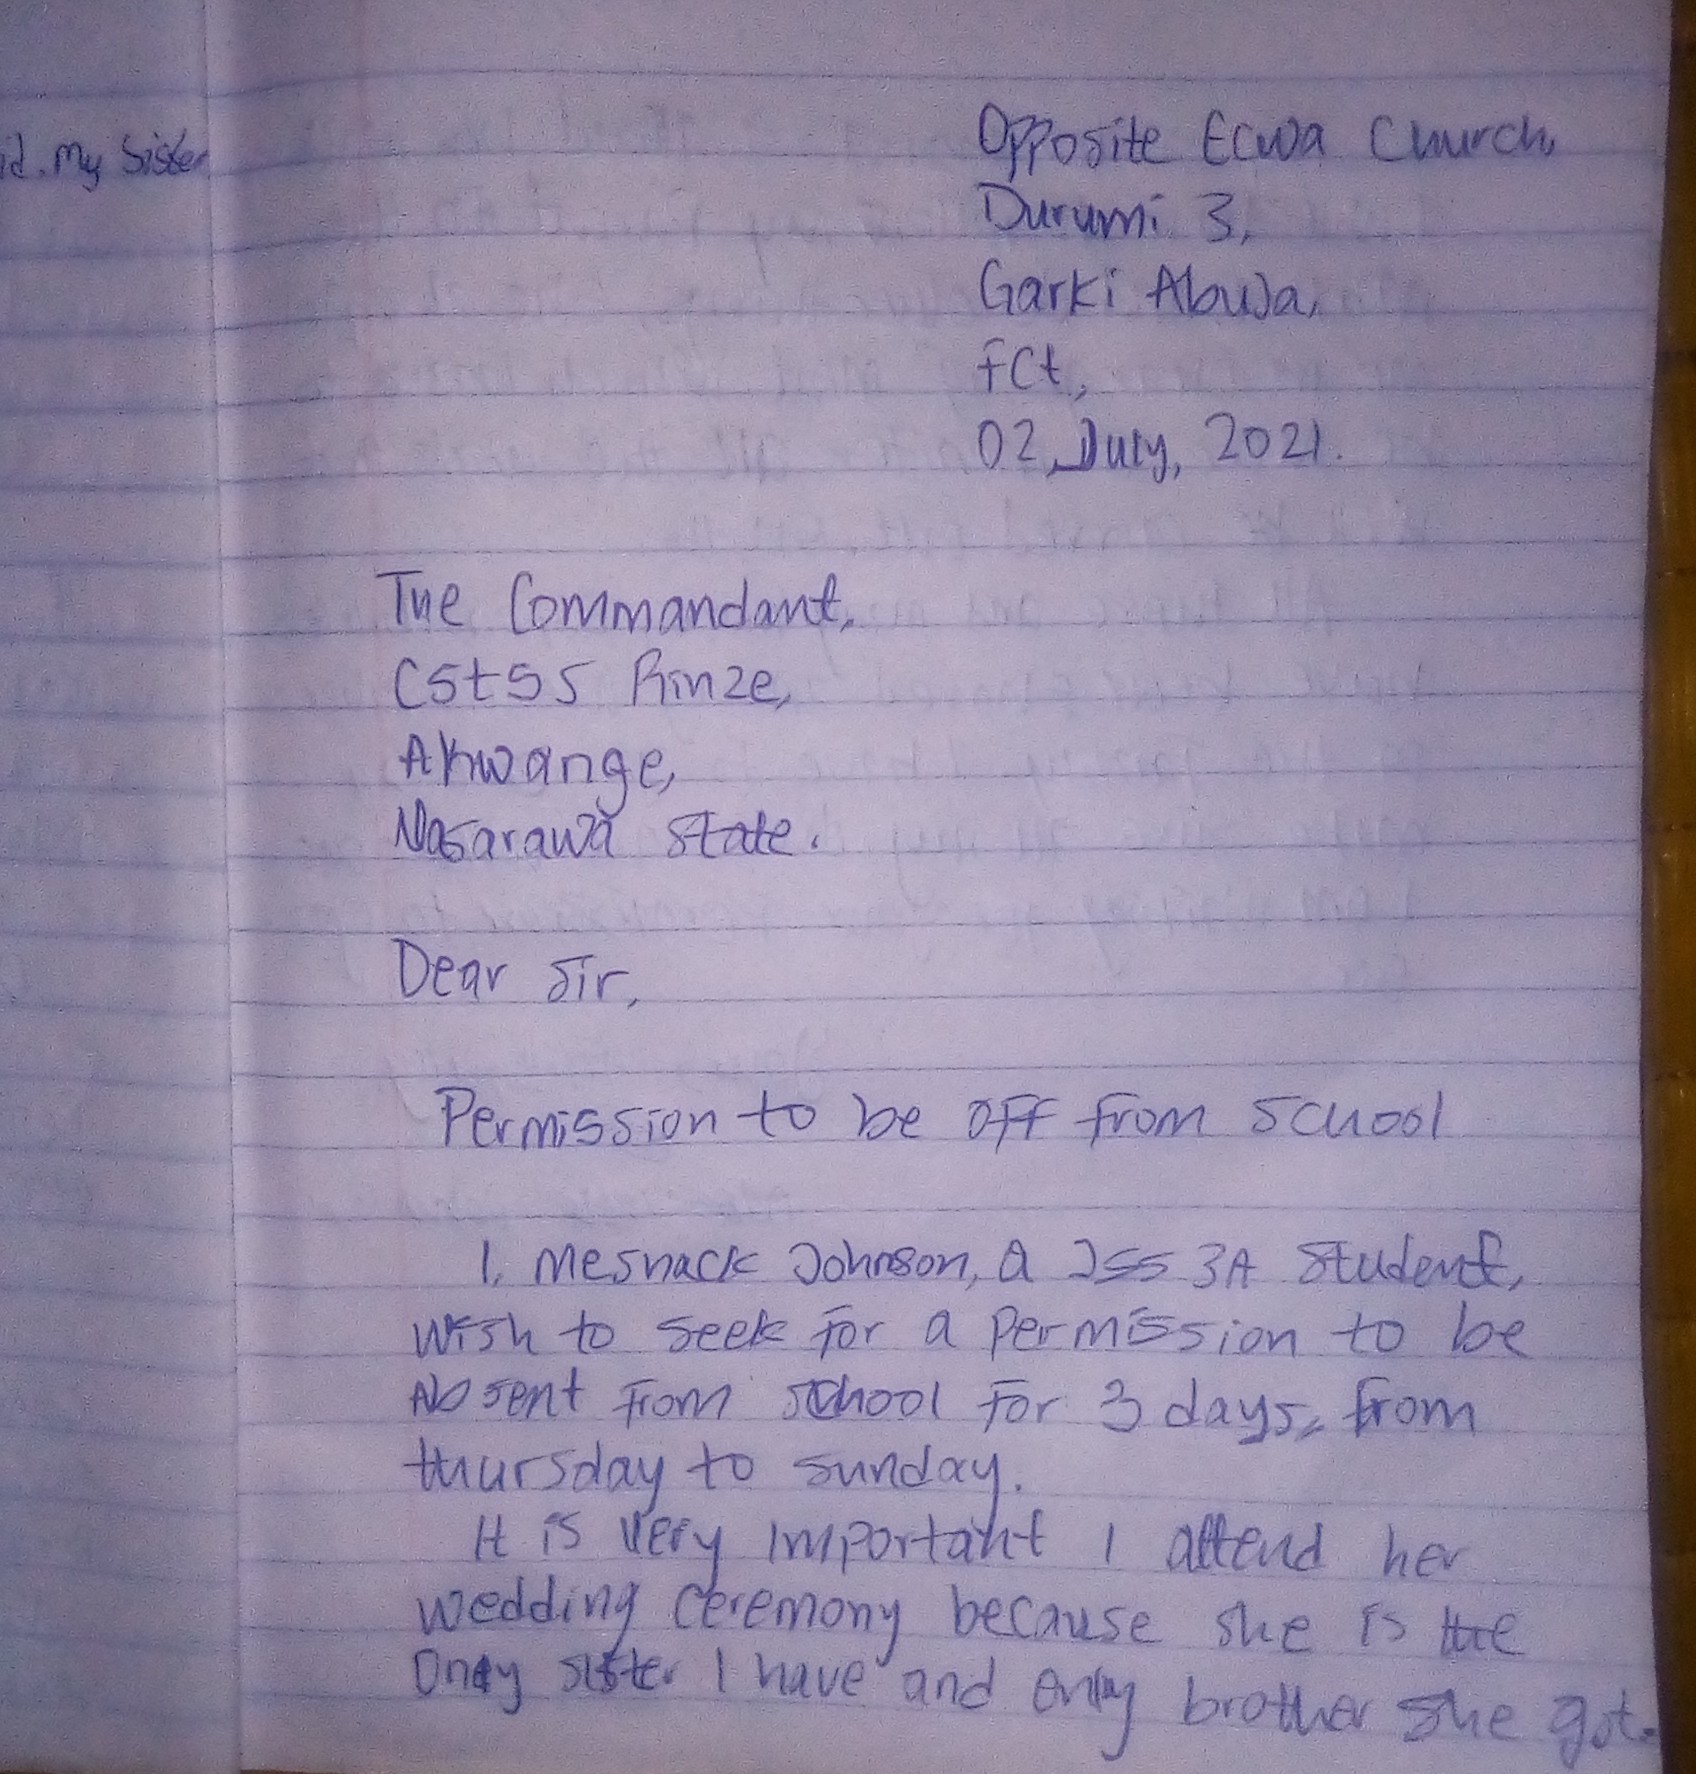 id. My Sister
Opposite Ecwa Church,
Durumi 3,
Garki Abuja,
FCt,
02, July, 2021.
The Commandant,
CSTSS Rinze,
Akwanga,
Nasarawa State.
Dear Sir,
Permission to be off from School
I, Meshack Johnson, a JSS 3A Student,
wish to seek for a permission to be
Absent from school for 3 days, from
thursday to sunday.
It is very important I attend her
wedding ceremony because she is the
Only sister I have and only brother she got.